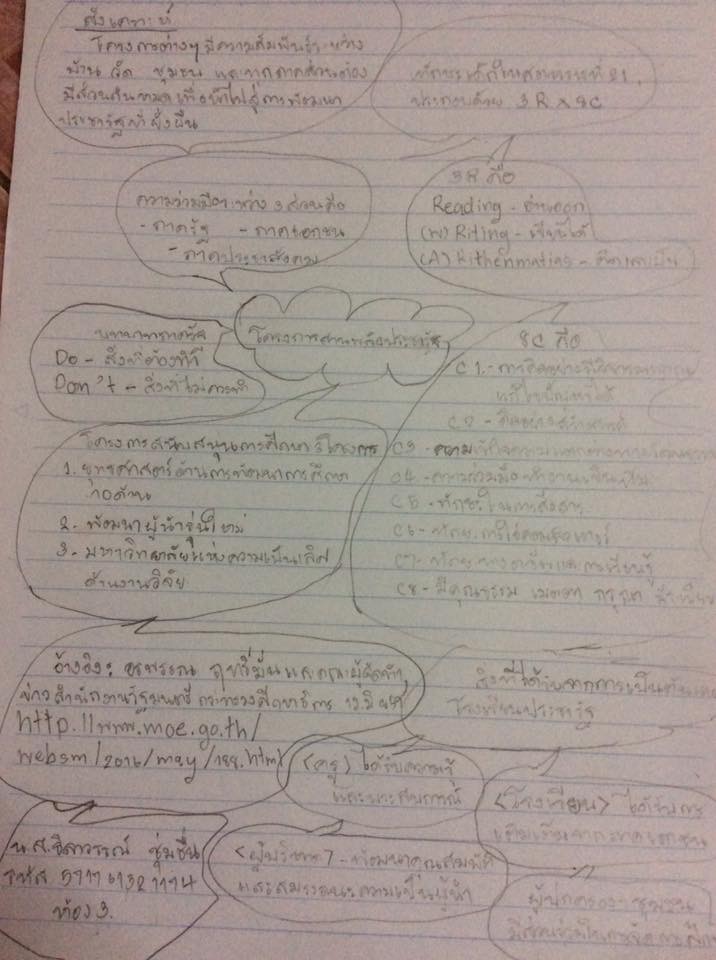 สังเคราะห์
โครงการต่างๆ มีความสัมพันธ์ระหว่าง
บ้าน วัด ชุมชน และทุกภาคส่วนต้อง
ประชารัฐที่ยั่งยืน
ทักษะ ศตวรรษที่ 21
ประกอบด้วย 3R x 8C
3R คือ
Reading - อ่านออก
(W)Riting - เขียนได้
(A)Rithenmatics - คิดเลขเป็น
ความร่วมมือระหว่าง 3 ส่วนคือ
- ภาครัฐ - ภาคเอกชน
- ภาคประชาสังคม
โครงการสานพลังประชารัฐ
Do - สิ่งที่ต้องทำ
Don't - สิ่งที่ไม่ควรทำ
8C คือ
C1 - การคิดอย่างมีวิจารณญาณ
แก้ไขปัญหาได้
C2 - คิดอย่างสร้างสรรค์
C3 - ความเข้าใจความแตกต่างทางวัฒนธรรม
C4 - ความร่วมมือ ทำงานเป็นทีม
C5 - ทักษะในการสื่อสาร
C6 - ทักษะการใช้คอมพิวเตอร์
C7 - ทักษะทางอาชีพและการเรียนรู้
C8 - มีคุณธรรม เมตตา กรุณา
โครงการสนับสนุนการศึกษา 3 โครงการ
1. ยุทธศาสตร์ด้านการพัฒนาการศึกษา
10 ด้าน
2. พัฒนาผู้นำรุ่นใหม่
3. มหาวิทยาลัยแห่งความเป็นเลิศ
ด้านงานวิจัย
อ้างอิง: อรพรรณ ฤทธิ์มั่น และคณะผู้จัดทำ
ข่าวสำนักงานรัฐมนตรี กระทรวงศึกษาธิการ
http://www.moe.go.th/
websm/2016/may/188.html
สิ่งที่ได้รับจากการเป็น
โรงเรียนประชารัฐ
<ครู> ได้รับความรู้
และประสบการณ์
<โรงเรียน> ได้รับการ
เติมเต็มจากภาคเอกชน
<ผู้บริหาร> - พัฒนาคุณสมบัติ
และสมรรถนะความเป็นผู้นำ
ผู้ปกครอง ชุมชน
มีส่วนร่วมในการจัดการศึกษา
น.ส. ชุ่มชื่น
รหัส
ห้อง 3